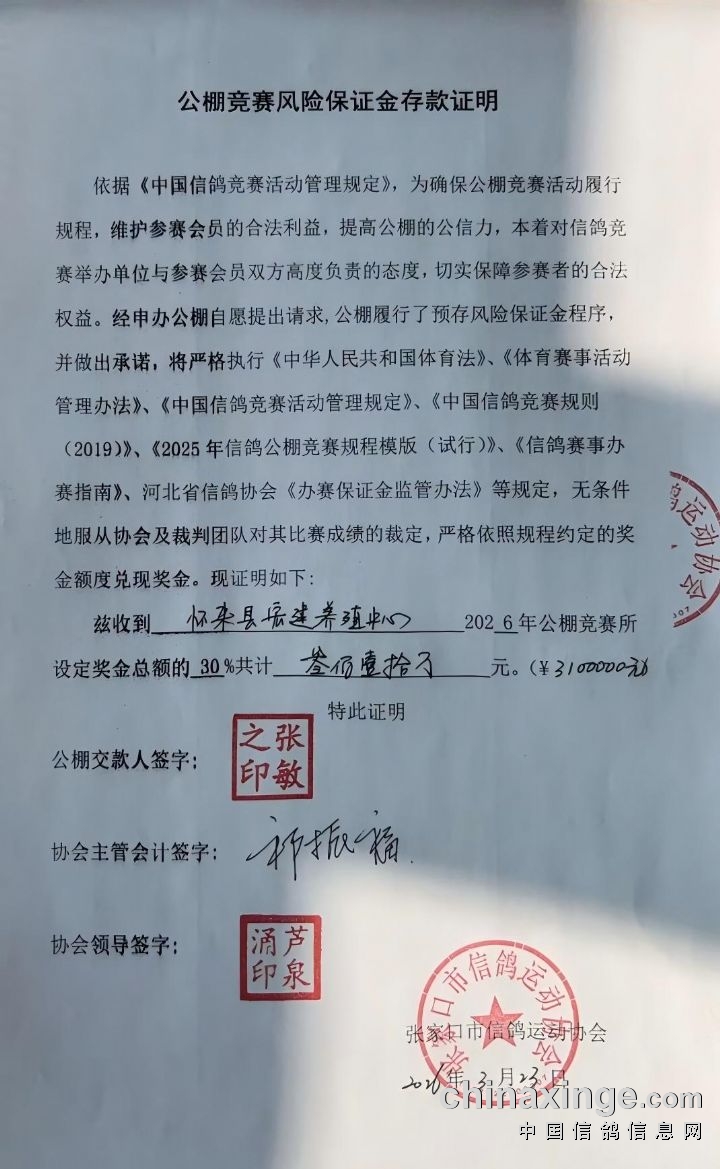 公棚竞赛风险保证金存款证明
依据《中国信鸽竞赛活动管理规定》，为确保公棚竞赛活动履行
规程，维护参赛会员的合法利益，提高公棚的公信力，本着对信鸽竞
赛举办单位与参赛会员双方高度负责的态度，切实保障参赛者的合法
权益。经申办公棚自愿提出请求,公棚履行了预存风险保证金程序，
并做出承诺，将严格执行《中华人民共和国体育法》、《体育赛事活动
管理办法》、《中国信鸽竞赛活动管理规定》、《中国信鸽竞赛规则
（2019）》、《2025年信鸽公棚竞赛规程模版（试行）》、《信鸽赛事办
赛指南》、河北省信鸽协会《办赛保证金监管办法》等规定，无条件
地服从协会及裁判团队对其比赛成绩的裁定，严格依照规程约定的奖
金额度兑现奖金。现证明如下：
兹收到 怀来县宏建养殖中心 2026年公棚竞赛所
设定奖金总额的 30%共计 叁佰壹拾万 元。（¥3100000元）
特此证明
公棚交款人签字：
张敏之印
协会主管会计签字：
祁振福
协会领导签字：
芦泉涌印
张家口市信鸽运动协会
张家口市信鸽运动协会
2026年3月23日
鸽运动协会
chinaxinge.com
中国信鸽信息网